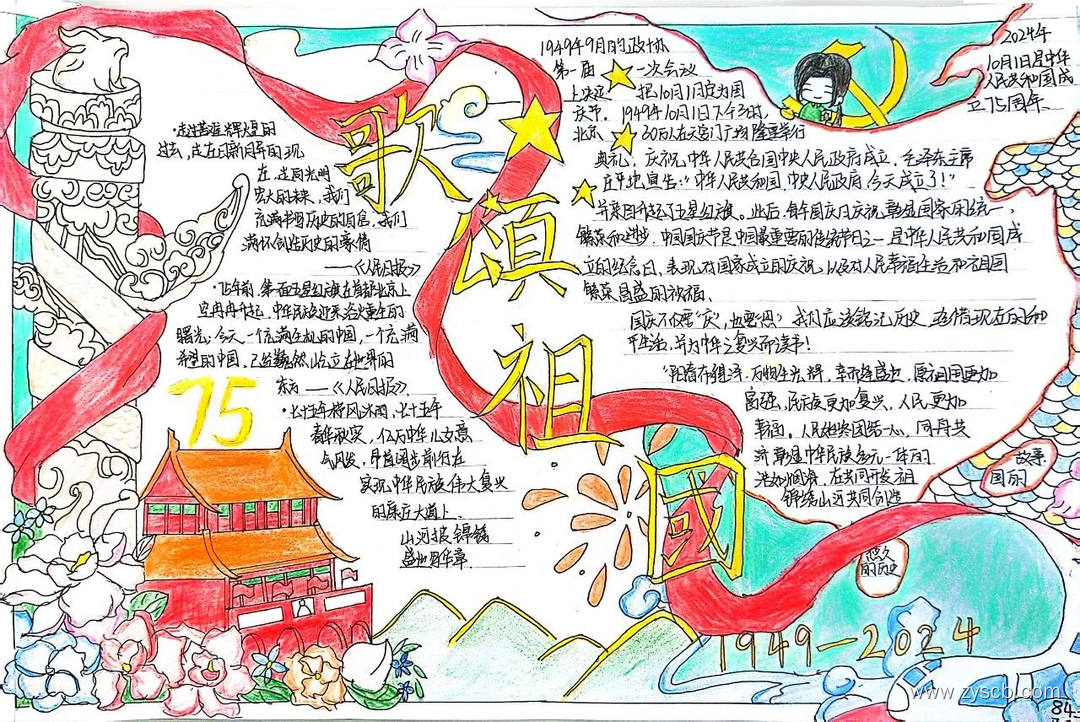 歌頌祖國
1949年9月的政协
第一届一次会议
上决定把10月1日定为国
庆节。1949年10月1日下午3时,
北京30万人在天安门广场隆重举行
典礼,庆祝中华人民共合国中央人民政府成立,毛泽东主席
庄严地宣告:“中华人民共和国,中央人民政府,今天成立了!”
并亲自升起了五星红旗。此后,每年国庆日庆祝,彰显国家的统一,
繁荣和进步,中国国庆节是中国最重要的传统节日之一是中华人民共和国成
立的纪念日,表现对国家成立的庆祝,以及对人民幸福生活和祖国
繁荣昌盛的祝福。
国庆不仅要“庆”,也要“思”我们应该铭记历史,珍惜现在的和
平生活,并为中华之复兴而读书!
阳春布德泽,万物生光辉,幸而逢盛世,愿祖国更加
富强,民族更加复兴,人民更加
幸福。人民始终团结一心,同舟共
济,彰显中华民族多元一体的
在共同开发祖
锦绣山河共同创造
2024年
10月1日是中华
人民共和国成
立75周年
·走过苦难辉煌的
过去,走在日新月异的现
在,走向光明
宏大的未来,我们
充满书写历史的自信,我们
满怀创造历史的豪情
——《人民日报》
·75年前,第一面五星红旗在首都北京上
空冉冉升起,中华民族迎来浴火重生的
曙光;今天,一个充满生机的中国,一个充满
希望的中国,已经巍然屹立在世界的
东方——《人民日报》
75
·七十五年栉风沐雨,七十五年
春华秋实,亿万中华儿女意
气风发,昂首阔步前行在
实现中华民族伟大复兴
的康庄大道上
山河披锦绣
盛世谱华章
故事
国丽
悠久
的历史
1949—2024
www.zyscb.com
84